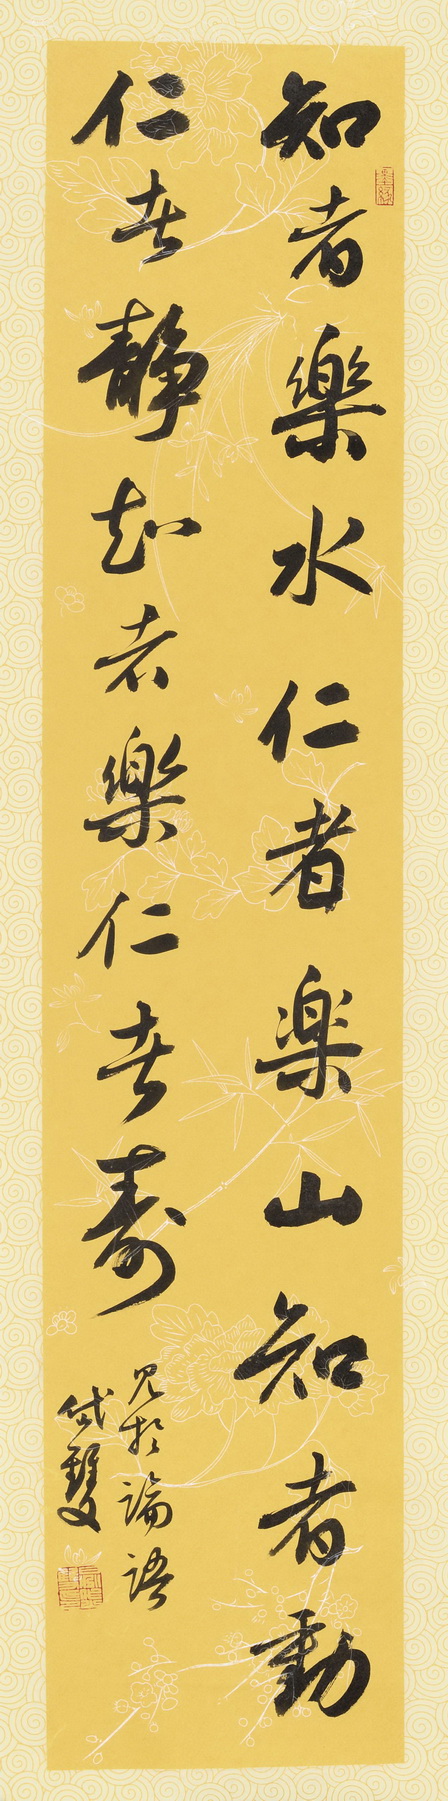 知者樂水仁者楽山知者動
仁者静知者樂仁者壽
見於論語